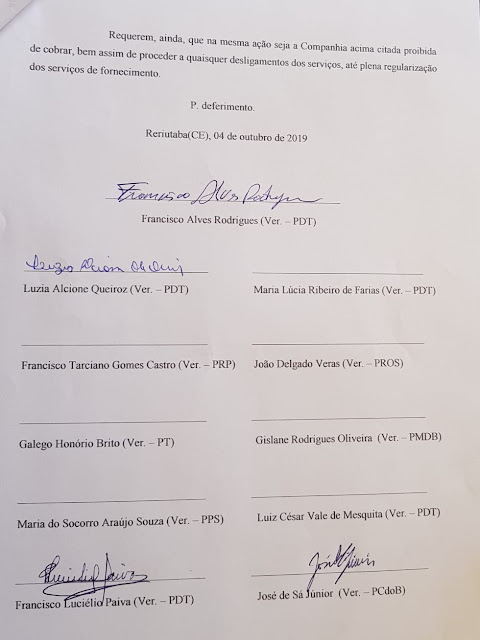 Requerem, ainda, que na mesma ação seja a Companhia acima citada proibida
de cobrar, bem assim de proceder a quaisquer desligamentos dos serviços, até plena regularização
dos serviços de fornecimento.
P. deferimento.
Reriutaba(CE), 04 de outubro de 2019
Francisco Alves Rodrigues
Francisco Alves Rodrigues (Ver. – PDT)
Luzia Alcione Queiroz (Ver. – PDT)
Maria Lúcia Ribeiro de Farias (Ver. – PDT)
Francisco Tarciano Gomes Castro (Ver. – PRP)
João Delgado Veras (Ver. – PROS)
Galego Honório Brito (Ver. – PT)
Gislane Rodrigues Oliveira (Ver. – PMDB)
Maria do Socorro Araújo Souza (Ver. – PPS)
Luiz César Vale de Mesquita (Ver. – PDT)
Francisco Luciélio Paiva (Ver. – PDT)
José de Sá Júnior (Ver. – PCdoB)